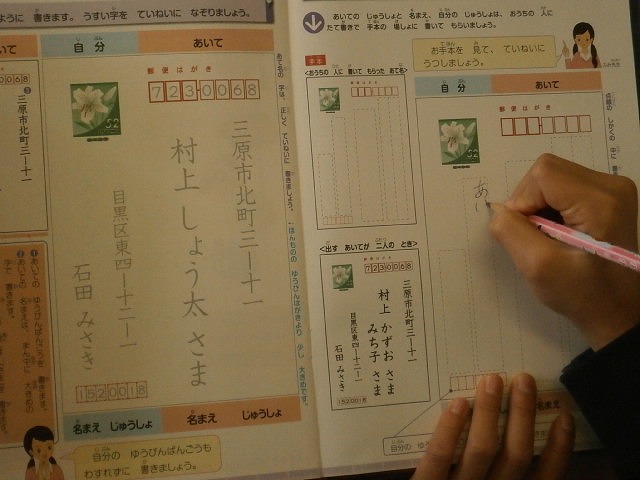 書きます。うすい字を ていねいに なぞりましょう。
自分
あいて
郵便はがき
7230068
52
三原市北町三ー十一
村上 しょう太 さま
目黒区東四ー十二ー一
石田 みさき
1520018
名まえ じゅうしょ
名まえ じゅうしょ
自分の ゆうびんばんごうも
わすれずに 書きましょう。
三原市北町三ー十一
あいての じゅうしょと 名まえ、自分の じゅうしょは、おうちの 人に
たて書きで 手本の 場しょに 書いて もらいましょう。
お手本を 見て、ていねいに
うつしましょう。
手本
<おうちの 人に 書いて もらった あて名>
<出す あいてが 二人の とき>
7230068
三原市北町三ー十一
村上 かずお さま
みち子 さま
目黒区東四ー十二ー一
石田 みさき
1520018
自分
あいて
郵便はがき
52
あ